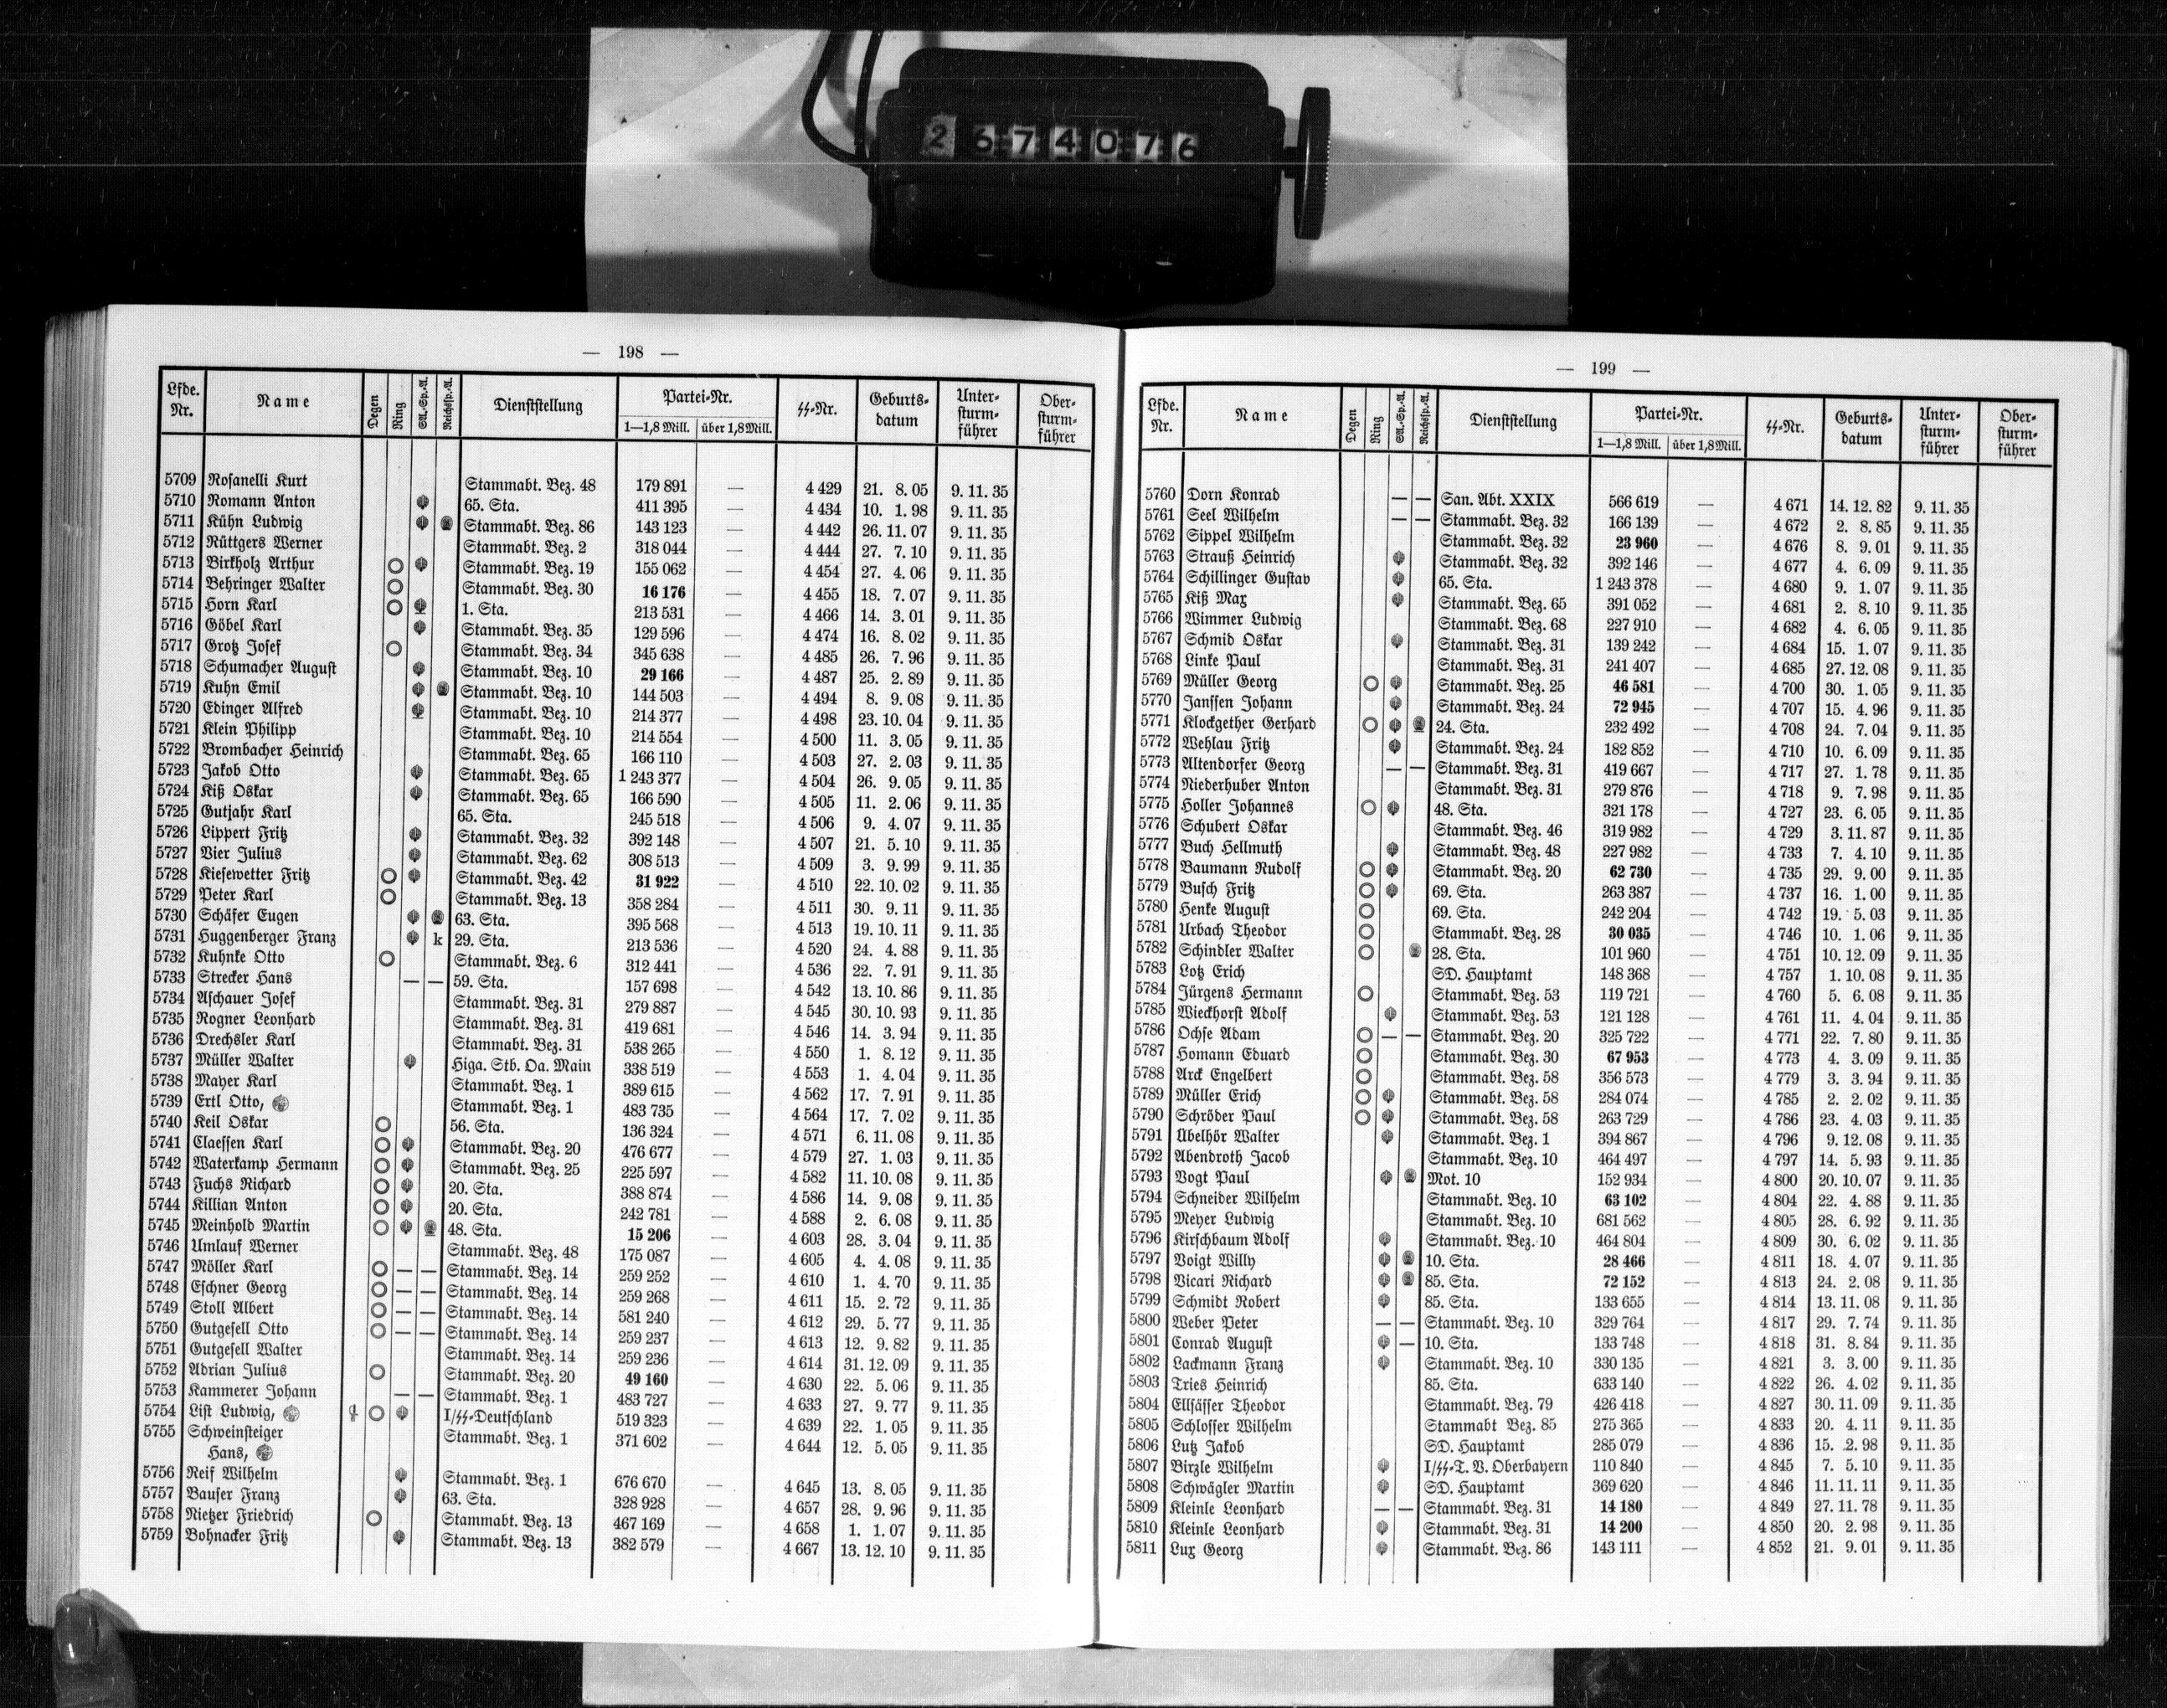 2674076
— 198 —
Lfde. Nr. Name Degen Ring SA.-Sp.-A. Reichssp.-A. Dienststellung Partei-Nr. 1—1,8 Mill. über 1,8 Mill. SS-Nr. Geburtsdatum Untersturmführer Obersturmführer
5709 Rosanelli Kurt Stammabt. Bez. 48 179 891 — 4 429 21. 8. 05 9. 11. 35
5710 Romann Anton 65. Sta. 411 395 — 4 434 10. 1. 98 9. 11. 35
5711 Kühn Ludwig Stammabt. Bez. 86 143 123 — 4 442 26. 11. 07 9. 11. 35
5712 Rüttgers Werner Stammabt. Bez. 2 318 044 — 4 444 27. 7. 10 9. 11. 35
5713 Birkholz Arthur Stammabt. Bez. 19 155 062 — 4 454 27. 4. 06 9. 11. 35
5714 Behringer Walter Stammabt. Bez. 30 16 176 — 4 455 18. 7. 07 9. 11. 35
5715 Horn Karl 1. Sta. 213 531 — 4 466 14. 3. 01 9. 11. 35
5716 Göbel Karl Stammabt. Bez. 35 129 596 — 4 474 16. 8. 02 9. 11. 35
5717 Grotz Josef Stammabt. Bez. 34 345 638 — 4 485 26. 7. 96 9. 11. 35
5718 Schumacher August Stammabt. Bez. 10 29 166 — 4 487 25. 2. 89 9. 11. 35
5719 Kuhn Emil Stammabt. Bez. 10 144 503 — 4 494 8. 9. 08 9. 11. 35
5720 Edinger Alfred Stammabt. Bez. 10 214 377 — 4 498 23. 10. 04 9. 11. 35
5721 Klein Philipp Stammabt. Bez. 10 214 554 — 4 500 11. 3. 05 9. 11. 35
5722 Brombacher Heinrich Stammabt. Bez. 65 166 110 — 4 503 27. 2. 03 9. 11. 35
5723 Jakob Otto Stammabt. Bez. 65 1 243 377 — 4 504 26. 9. 05 9. 11. 35
5724 Kiß Oskar Stammabt. Bez. 65 166 590 — 4 505 11. 2. 06 9. 11. 35
5725 Gutjahr Karl 65. Sta. 245 518 — 4 506 9. 4. 07 9. 11. 35
5726 Lippert Fritz Stammabt. Bez. 32 392 148 — 4 507 21. 5. 10 9. 11. 35
5727 Vier Julius Stammabt. Bez. 62 308 513 — 4 509 3. 9. 99 9. 11. 35
5728 Kiesewetter Fritz Stammabt. Bez. 42 31 922 — 4 510 22. 10. 02 9. 11. 35
5729 Peter Karl Stammabt. Bez. 13 358 284 — 4 511 30. 9. 11 9. 11. 35
5730 Schäfer Eugen 63. Sta. 395 568 — 4 513 19. 10. 11 9. 11. 35
5731 Huggenberger Franz k 29. Sta. 213 536 — 4 520 24. 4. 88 9. 11. 35
5732 Kuhnke Otto Stammabt. Bez. 6 312 441 — 4 536 22. 7. 91 9. 11. 35
5733 Strecker Hans — — 59. Sta. 157 698 — 4 542 13. 10. 86 9. 11. 35
5734 Aschauer Josef Stammabt. Bez. 31 279 887 — 4 545 30. 10. 93 9. 11. 35
5735 Rogner Leonhard Stammabt. Bez. 31 419 681 — 4 546 14. 3. 94 9. 11. 35
5736 Drechsler Karl Stammabt. Bez. 31 538 265 — 4 550 1. 8. 12 9. 11. 35
5737 Müller Walter Higa. Stb. Oa. Main 338 519 — 4 553 1. 4. 04 9. 11. 35
5738 Mayer Karl Stammabt. Bez. 1 389 615 — 4 562 17. 7. 91 9. 11. 35
5739 Ertl Otto, Stammabt. Bez. 1 483 735 — 4 564 17. 7. 02 9. 11. 35
5740 Keil Oskar 56. Sta. 136 324 — 4 571 6. 11. 08 9. 11. 35
5741 Claessen Karl Stammabt. Bez. 20 476 677 — 4 579 27. 1. 03 9. 11. 35
5742 Waterkamp Hermann Stammabt. Bez. 25 225 597 — 4 582 11. 10. 08 9. 11. 35
5743 Fuchs Richard 20. Sta. 388 874 — 4 586 14. 9. 08 9. 11. 35
5744 Killian Anton 20. Sta. 242 781 — 4 588 2. 6. 08 9. 11. 35
5745 Meinhold Martin 48. Sta. 15 206 — 4 603 28. 3. 04 9. 11. 35
5746 Umlauf Werner Stammabt. Bez. 48 175 087 — 4 605 4. 4. 08 9. 11. 35
5747 Möller Karl — — Stammabt. Bez. 14 259 252 — 4 610 1. 4. 70 9. 11. 35
5748 Eschner Georg — — Stammabt. Bez. 14 259 268 — 4 611 15. 2. 72 9. 11. 35
5749 Stoll Albert — — Stammabt. Bez. 14 581 240 — 4 612 29. 5. 77 9. 11. 35
5750 Gutgesell Otto — — Stammabt. Bez. 14 259 237 — 4 613 12. 9. 82 9. 11. 35
5751 Gutgesell Walter Stammabt. Bez. 14 259 236 — 4 614 31. 12. 09 9. 11. 35
5752 Adrian Julius Stammabt. Bez. 20 49 160 — 4 630 22. 5. 06 9. 11. 35
5753 Kammerer Johann — — Stammabt. Bez. 1 483 727 — 4 633 27. 9. 77 9. 11. 35
5754 List Ludwig, I/SS-Deutschland 519 323 — 4 639 22. 1. 05 9. 11. 35
5755 Schweinsteiger Stammabt. Bez. 1 371 602 — 4 644 12. 5. 05 9. 11. 35
Hans,
5756 Reif Wilhelm Stammabt. Bez. 1 676 670 — 4 645 13. 8. 05 9. 11. 35
5757 Bauser Franz 63. Sta. 328 928 — 4 657 28. 9. 96 9. 11. 35
5758 Nietzer Friedrich Stammabt. Bez. 13 467 169 — 4 658 1. 1. 07 9. 11. 35
5759 Bohnacker Fritz Stammabt. Bez. 13 382 579 — 4 667 13. 12. 10 9. 11. 35
— 199 —
Lfde. Nr. Name Degen Ring SA.-Sp.-A. Reichssp.-A. Dienststellung Partei-Nr. 1—1,8 Mill. über 1,8 Mill. SS-Nr. Geburtsdatum Untersturmführer Obersturmführer
5760 Dorn Konrad — — San. Abt. XXIX 566 619 — 4 671 14. 12. 82 9. 11. 35
5761 Seel Wilhelm — — Stammabt. Bez. 32 166 139 — 4 672 2. 8. 85 9. 11. 35
5762 Sippel Wilhelm Stammabt. Bez. 32 23 960 — 4 676 8. 9. 01 9. 11. 35
5763 Strauß Heinrich Stammabt. Bez. 32 392 146 — 4 677 4. 6. 09 9. 11. 35
5764 Schillinger Gustav 65. Sta. 1 243 378 — 4 680 9. 1. 07 9. 11. 35
5765 Kiß Max Stammabt. Bez. 65 391 052 — 4 681 2. 8. 10 9. 11. 35
5766 Wimmer Ludwig Stammabt. Bez. 68 227 910 — 4 682 4. 6. 05 9. 11. 35
5767 Schmid Oskar Stammabt. Bez. 31 139 242 — 4 684 15. 1. 07 9. 11. 35
5768 Linke Paul Stammabt. Bez. 31 241 407 — 4 685 27. 12. 08 9. 11. 35
5769 Müller Georg Stammabt. Bez. 25 46 581 — 4 700 30. 1. 05 9. 11. 35
5770 Janssen Johann Stammabt. Bez. 24 72 945 — 4 707 15. 4. 96 9. 11. 35
5771 Klockgether Gerhard 24. Sta. 232 492 — 4 708 24. 7. 04 9. 11. 35
5772 Wehlau Fritz Stammabt. Bez. 24 182 852 — 4 710 10. 6. 09 9. 11. 35
5773 Altendorfer Georg — — Stammabt. Bez. 31 419 667 — 4 717 27. 1. 78 9. 11. 35
5774 Niederhuber Anton Stammabt. Bez. 31 279 876 — 4 718 9. 7. 98 9. 11. 35
5775 Holler Johannes 48. Sta. 321 178 — 4 727 23. 6. 05 9. 11. 35
5776 Schubert Oskar Stammabt. Bez. 46 319 982 — 4 729 3. 11. 87 9. 11. 35
5777 Buch Hellmuth Stammabt. Bez. 48 227 982 — 4 733 7. 4. 10 9. 11. 35
5778 Baumann Rudolf Stammabt. Bez. 20 62 730 — 4 735 29. 9. 00 9. 11. 35
5779 Busch Fritz 69. Sta. 263 387 — 4 737 16. 1. 00 9. 11. 35
5780 Henke August 69. Sta. 242 204 — 4 742 19. 5. 03 9. 11. 35
5781 Urbach Theodor Stammabt. Bez. 28 30 035 — 4 746 10. 1. 06 9. 11. 35
5782 Schindler Walter 28. Sta. 101 960 — 4 751 10. 12. 09 9. 11. 35
5783 Lotz Erich SD. Hauptamt 148 368 — 4 757 1. 10. 08 9. 11. 35
5784 Jürgens Hermann Stammabt. Bez. 53 119 721 — 4 760 5. 6. 08 9. 11. 35
5785 Wieckhorst Adolf Stammabt. Bez. 53 121 128 — 4 761 11. 4. 04 9. 11. 35
5786 Ochse Adam — — Stammabt. Bez. 20 325 722 — 4 771 22. 7. 80 9. 11. 35
5787 Homann Eduard Stammabt. Bez. 30 67 953 — 4 773 4. 3. 09 9. 11. 35
5788 Arck Engelbert Stammabt. Bez. 58 356 573 — 4 779 3. 3. 94 9. 11. 35
5789 Müller Erich Stammabt. Bez. 58 284 074 — 4 785 2. 2. 02 9. 11. 35
5790 Schröder Paul Stammabt. Bez. 58 263 729 — 4 786 23. 4. 03 9. 11. 35
5791 Übelhör Walter Stammabt. Bez. 1 394 867 — 4 796 9. 12. 08 9. 11. 35
5792 Abendroth Jacob Stammabt. Bez. 10 464 497 — 4 797 14. 5. 93 9. 11. 35
5793 Vogt Paul Mot. 10 152 934 — 4 800 20. 10. 07 9. 11. 35
5794 Schneider Wilhelm Stammabt. Bez. 10 63 102 — 4 804 22. 4. 88 9. 11. 35
5795 Meyer Ludwig Stammabt. Bez. 10 681 562 — 4 805 28. 6. 92 9. 11. 35
5796 Kirschbaum Adolf Stammabt. Bez. 10 464 804 — 4 809 30. 6. 02 9. 11. 35
5797 Voigt Willy 10. Sta. 28 466 — 4 811 18. 4. 07 9. 11. 35
5798 Vicari Richard 85. Sta. 72 152 — 4 813 24. 2. 08 9. 11. 35
5799 Schmidt Robert 85. Sta. 133 655 — 4 814 13. 11. 08 9. 11. 35
5800 Weber Peter — — Stammabt. Bez. 10 329 764 — 4 817 29. 7. 74 9. 11. 35
5801 Conrad August — 10. Sta. 133 748 — 4 818 31. 8. 84 9. 11. 35
5802 Lackmann Franz Stammabt. Bez. 10 330 135 — 4 821 3. 3. 00 9. 11. 35
5803 Tries Heinrich 85. Sta. 633 140 — 4 822 26. 4. 02 9. 11. 35
5804 Ellsässer Theodor Stammabt. Bez. 79 426 418 — 4 827 30. 11. 09 9. 11. 35
5805 Schlosser Wilhelm Stammabt Bez. 85 275 365 — 4 833 20. 4. 11 9. 11. 35
5806 Lutz Jakob SD. Hauptamt 285 079 — 4 836 15. 2. 98 9. 11. 35
5807 Birzle Wilhelm I/SS-T. V. Oberbayern 110 840 — 4 845 7. 5. 10 9. 11. 35
5808 Schwägler Martin SD. Hauptamt 369 620 — 4 846 11. 11. 11 9. 11. 35
5809 Kleinle Leonhard — — Stammabt. Bez. 31 14 180 — 4 849 27. 11. 78 9. 11. 35
5810 Kleinle Leonhard Stammabt. Bez. 31 14 200 — 4 850 20. 2. 98 9. 11. 35
5811 Lux Georg Stammabt. Bez. 86 143 111 — 4 852 21. 9. 01 9. 11. 35